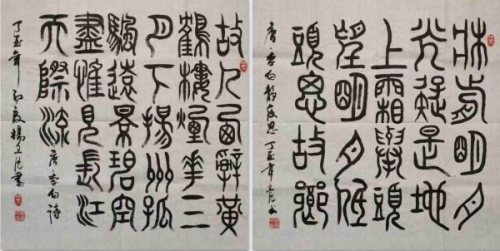 牀前明月
光疑是地
上霜舉頭
望明月低
頭思故鄉
唐李白靜夜思丁酉年
故人西辭黃
鶴樓煙花三
月下揚州孤
颿遠景碧空
盡惟見長江
天際流
唐李白詩
丁酉年